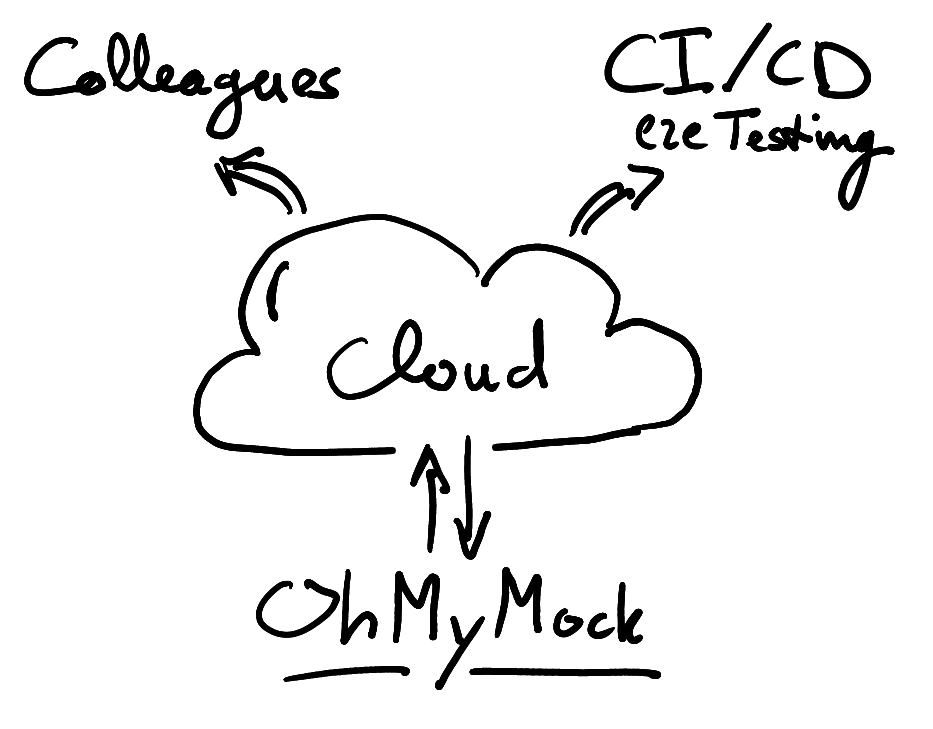 Colleagues
CI/CD
e2e Testing
Cloud
OhMyMock